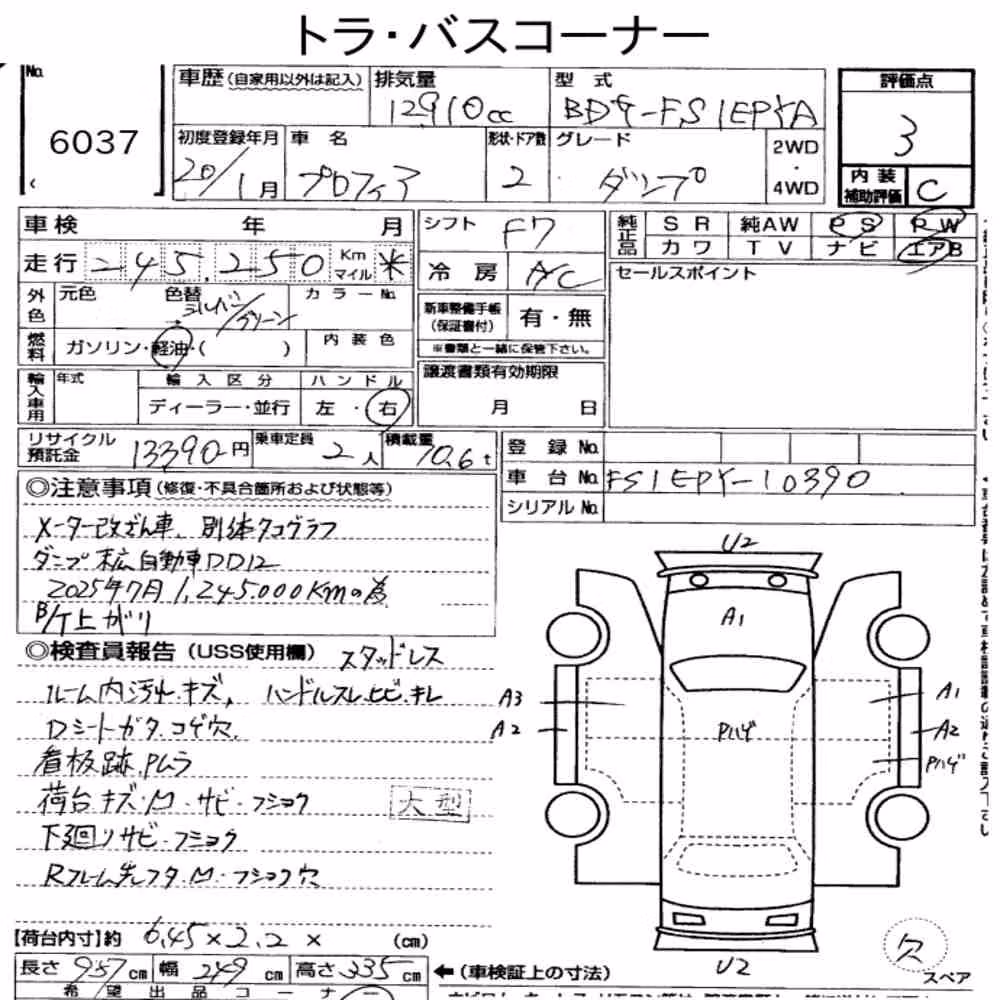 トラ・バスコーナー
No.
6037
車歴 (自家用以外は記入)
排気量
12910cc
型式
BDG-FS1EPYA
初度登録年月
20/1月
車名
プロフィア
形状・ドア数
2
グレード
ダンプ
2WD
・
4WD
評価点
3
内装
補助評価
C
車検 年 月
走行 245,250 Km マイル *
外色
元色
色替
シルバー/グリーン
カラーNo.
燃料
ガソリン・軽油・( )
内装色
輸入車用
年式
輸入区分
ディーラー・並行
ハンドル
左・右
シフト
F7
冷房
A/C
新車整備手帳
(保証書付)
有・無
※書類と一緒に保管下さい。
譲渡書類有効期限
月 日
純正品
SR 純AW PS PW
カワ TV ナビ エアB
セールスポイント
リサイクル
預託金
13390円
乗車定員
2人
積載量
10.6t
登録No.
車台No. FS1EPY-10390
シリアルNo.
◎注意事項 (修復・不具合箇所および状態等)
メーター改ざん車、別体タコグラフ
ダンプ 末広自動車DD12
2025年7月 1,245.000Kmの為
B/T上がり
◎検査員報告 (USS使用欄) スタッドレス
ルーム内汚れ.キズ, ハンドルスレ.ヒビ.キレ
Dシートガタ.コゲ穴.
看板跡.Pムラ
荷台キズ・M・サビ・フショク
大型
下廻りサビ・フショク
Rフレーム先フタ.M・フショク穴
U2
A1
A3
A2
Pハゲ
A1
A2
Pハゲ
U2
欠
スペア
【荷台内寸】約 6.45×2.2× (cm)
長さ 957cm 幅 249cm 高さ 335cm ←(車検証上の寸法)
希望出品コーナー